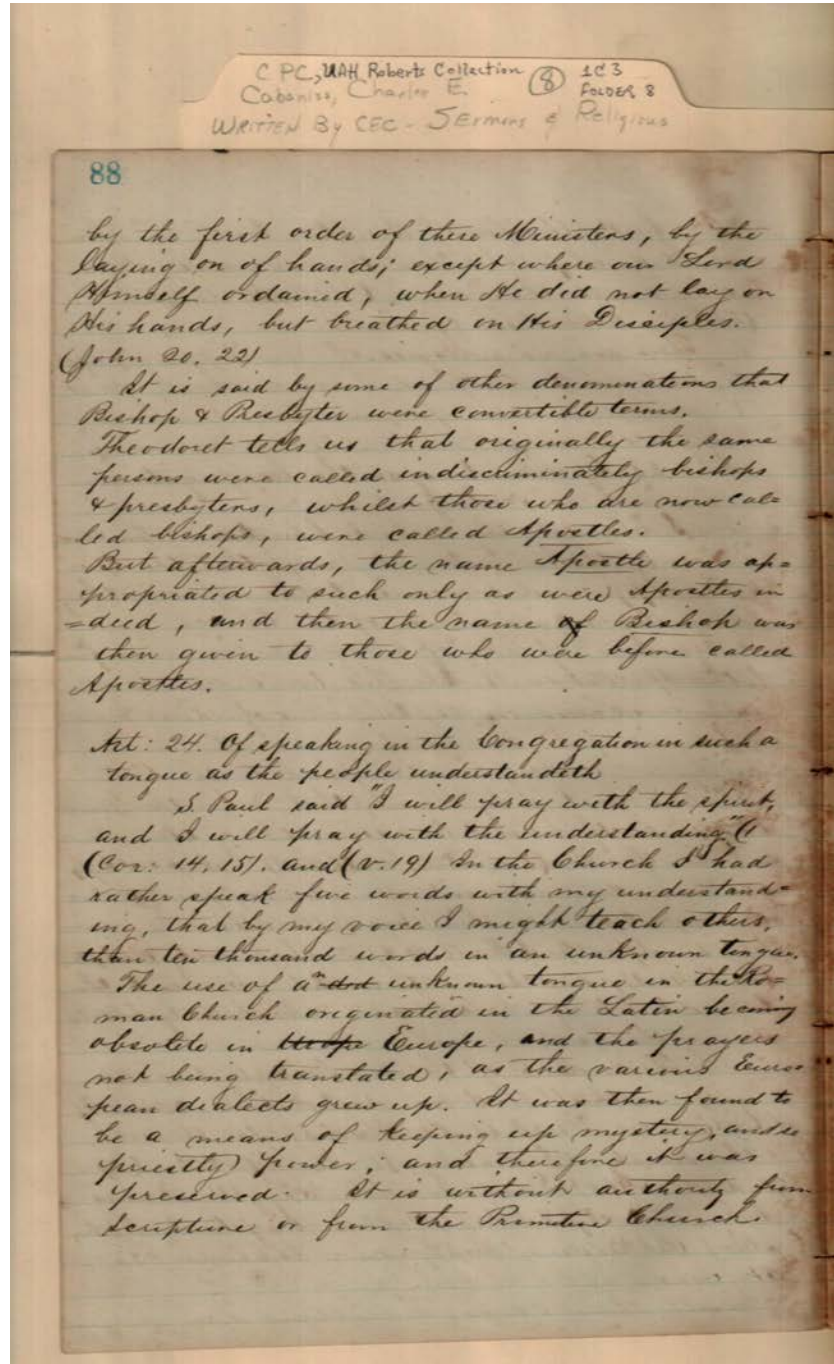 C PC, UAH Roberts Collection (8) 1C3
Cabaniss, Charles E. FOLDER 8
WRITTEN By CEC - SErmons & Religious
88
by the first order of these Ministers, by the
laying on of hands; except where our Lord
Himself ordained, when He did not lay on
His hands, but breathed on His Disciples.
(John 20. 22)
It is said by some of other denominations that
Bishop & Presbyter were convertible terms.
Theodoret tells us that originally the same
persons were called indiscriminately bishops
& presbyters, whilst those who are now cal=
led bishops, were called Apostles.
But afterwards, the name Apostle was ap=
propriated to such only as were Apostles in
=deed, and then the name of Bishop was
then given to those who were before called
Apostles.
Art: 24. Of speaking in the Congregation in such a
tongue as the people understandeth
S. Paul said "I will pray with the spirit,
and I will pray with the understanding" (1
(Cor: 14. 15). and (v. 19) In the Church I had
rather speak five words with my understand=
ing, that by my voice I might teach others,
than ten thousand words in an unknown tongue.
The use of an unknown tongue in the Ro=
man Church originated in the Latin becoming
obsolete in Europe, and the prayers
not being translated, as the various Euro
pean dialects grew up. It was then found to
be a means of keeping up mystery, and so
priestly power; and therefore it was
preserved. It is without authority from
Scripture or from the Primitive Church.